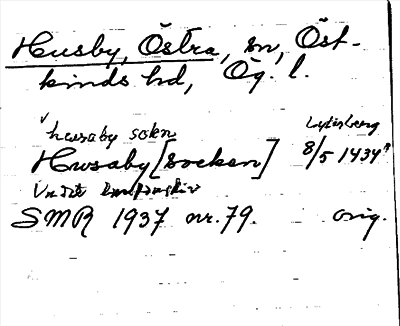 Husby, Östra, sn, Öst-
kinds hd, Ög. l.
husaby sokn
Husaby [socken] 8/5 1434
SMR 1937 nr. 79. orig.